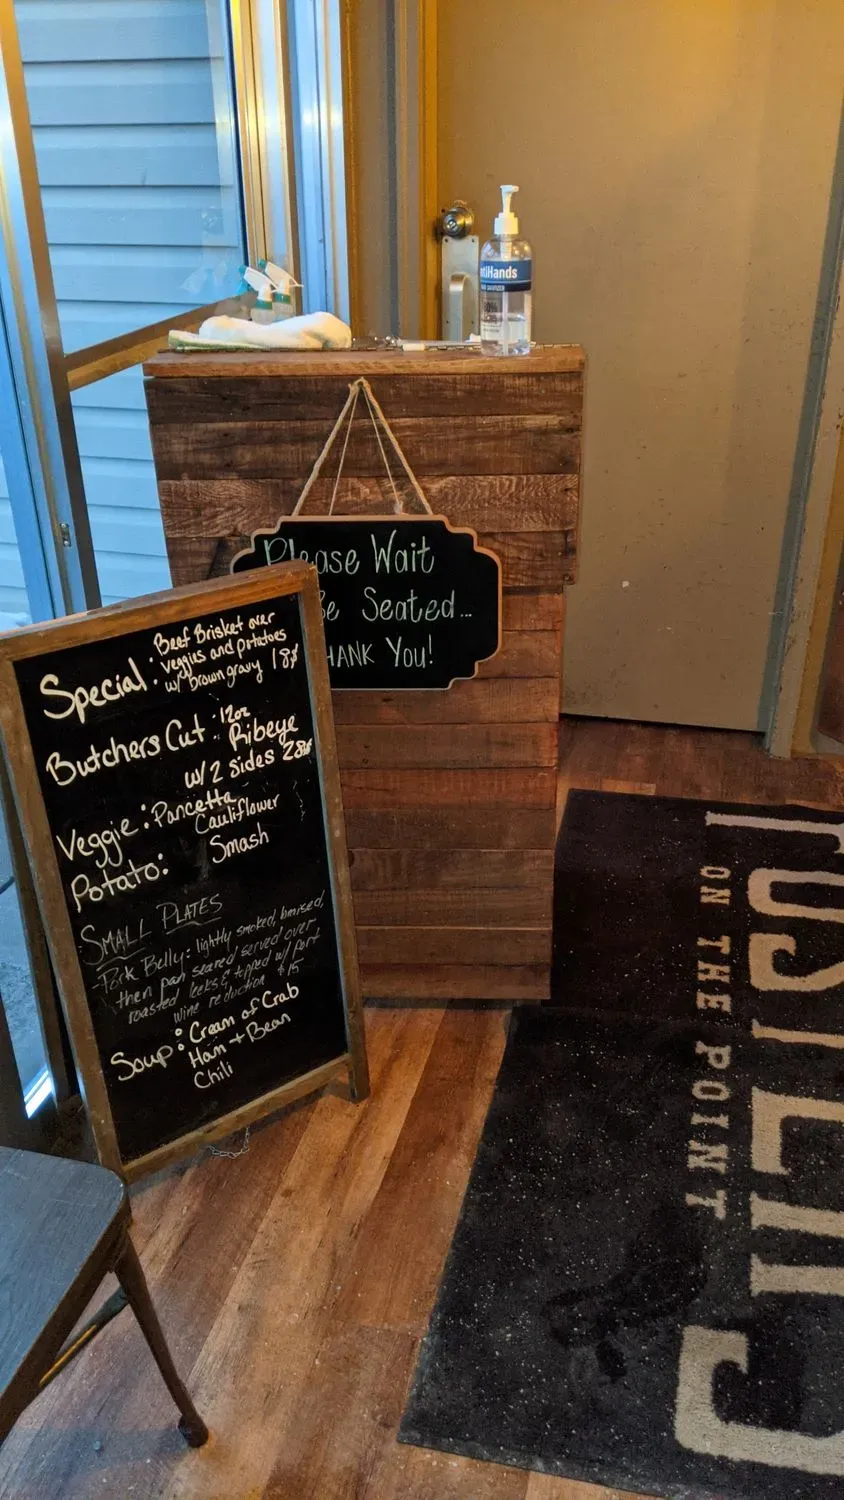 ntiHands
Please Wait
Be Seated...
HANK YOU!
Special: Beef Brisket over
veggies and potatoes
w/ brown gravy 18$
Butchers Cut: 12oz
Ribeye
w/2 sides 28$
Veggie: Pancetta
Cauliflower
Potato: Smash
SMALL PLATES
- Pork Belly: lightly smoked, braised,
then pan seared served over
roasted leeks & topped w/ port
wine reduction $15
Soup: Cream of Crab
Ham + Bean
Chili
ON THE POINT